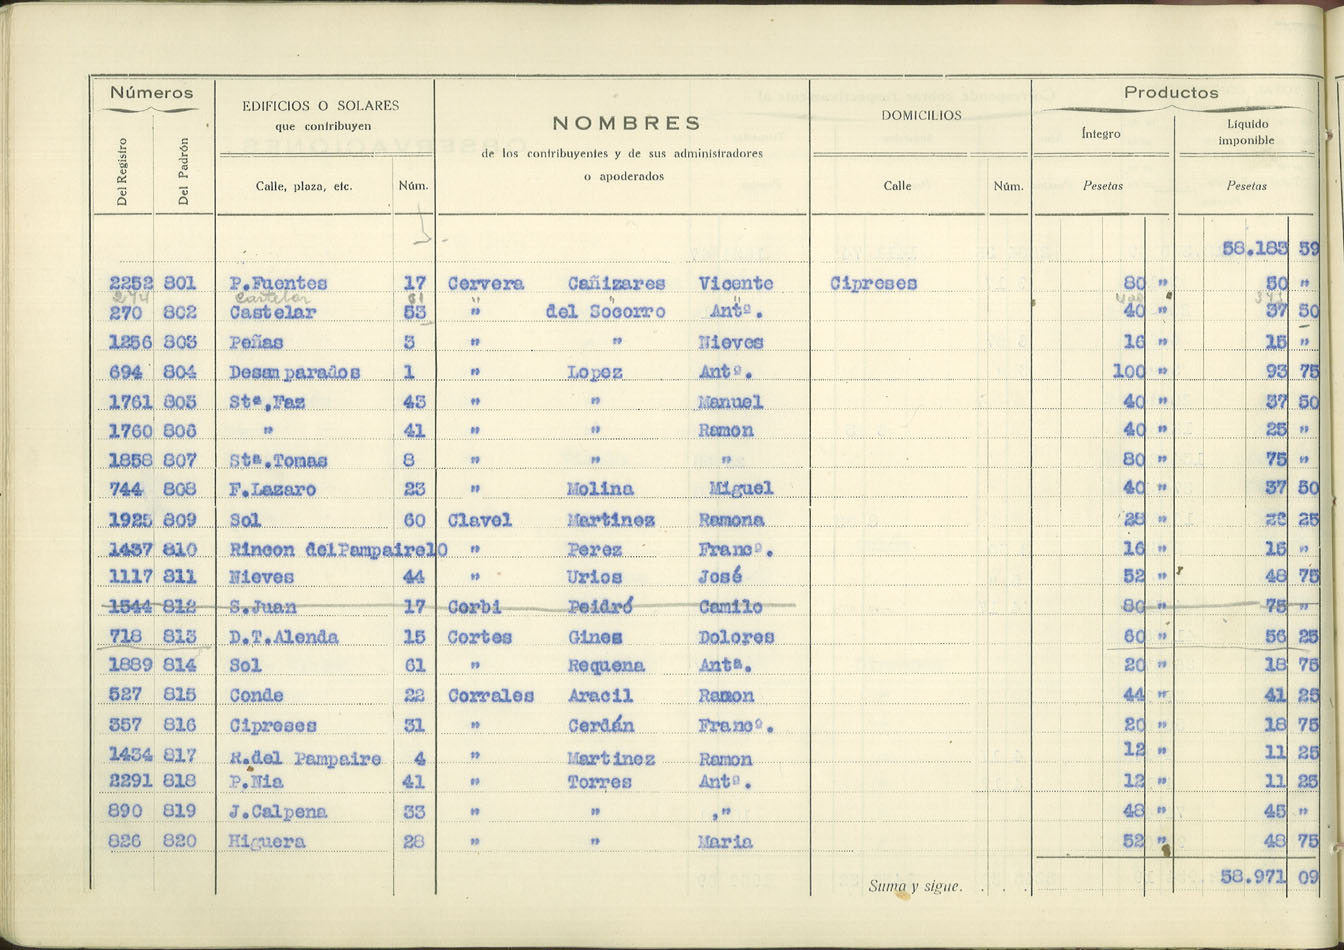 Números
EDIFICIOS O SOLARES
que contribuyen
NOMBRES
de los contribuyentes y de sus administradores
o apoderados
DOMICILIOS
Productos
Íntegro
Líquido
imponible
Del Registro Del Padrón Calle, plaza, etc. Núm. Calle Núm. Pesetas Pesetas
58.183 59
2252 801 P.Fuentes 17 Cervera Cañizares Vicente Cipreses 80 " 50 "
244 Castelar 61 " " "
270 802 Castelar 53 " del Socorro Antº. 40 " 37 50
1256 803 Peñas 3 " " Nieves 16 " 15 "
694 804 Desamparados 1 " Lopez Antº. 100 " 93 75
1761 805 Stª.Faz 43 " " Manuel 40 " 37 50
1760 806 " 41 " " Ramon 40 " 25 "
1858 807 Stª.Tomas 8 " " " 80 " 75 "
744 808 F.Lazaro 23 " Molina Miguel 40 " 37 50
1925 809 Sol 60 Clavel Martinez Ramona 28 " 26 25
1437 810 Rincon delPampaire10 " Perez Francº. 16 " 15 "
1117 811 Nieves 44 " Urios José 52 " 48 75
1544 812 S.Juan 17 Corbi Peidró Camilo 80 " 75 "
718 813 D.T.Alenda 15 Cortes Gines Dolores 60 " 56 25
1889 814 Sol 61 " Requena Antª. 20 " 18 75
527 815 Conde 22 Corrales Aracil Ramon 44 " 41 25
357 816 Cipreses 31 " Cerdán Francº. 20 " 18 75
1434 817 R.del Pampaire 4 " Martinez Ramon 12 " 11 25
2291 818 P.Nia 41 " Torres Antº. 12 " 11 25
890 819 J.Calpena 33 " " ," 48 " 45 "
826 820 Higuera 28 " " Maria 52 " 48 75
Suma y sigue. . . . 58.971 09